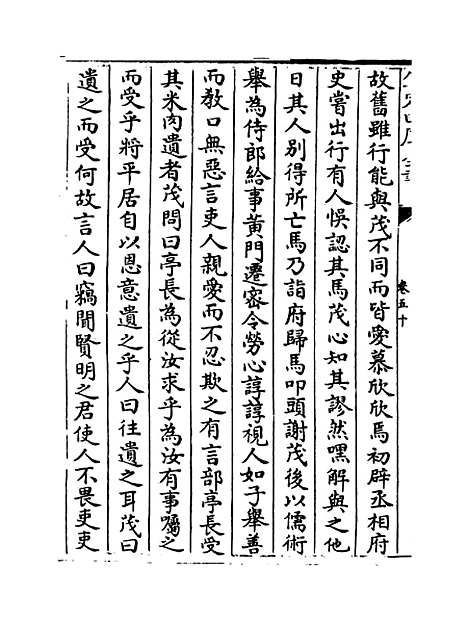 卷五十
故舊雖行能與茂不同而皆愛慕欣欣焉初辟丞相府
史嘗出行有人悞認其馬茂心知其謬然嘿解與之他
日其人別得所亡馬乃詣府歸馬叩頭謝茂後以儒術
舉為侍郎給事黃門遷密令勞心諄諄視人如子舉善
而教口無惡言吏人親愛而不忍欺之有言部亭長受
其米肉遺者茂問曰亭長為從汝求乎為汝有事囑之
而受乎將平居自以恩意遺之乎人曰往遺之耳茂曰
遺之而受何故言人曰竊聞賢明之君使人不畏吏吏